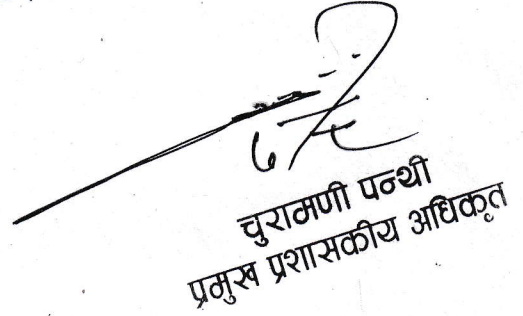 चुरामणी पन्थी
प्रमुख प्रशासकीय अधिकृत